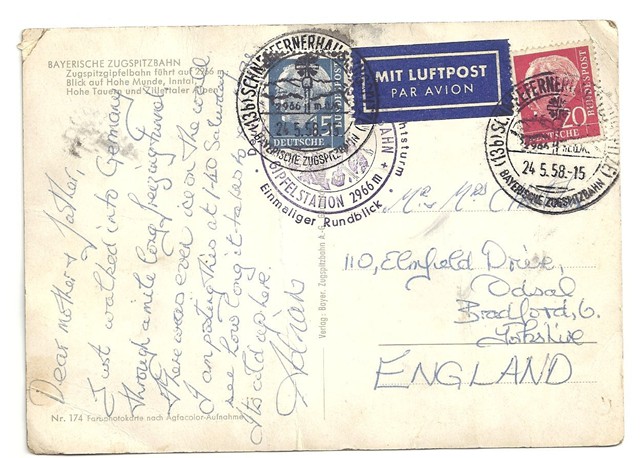 BAYERISCHE ZUGSPITZBAHN
Zugspitzgipfelbahn führt auf 2966 m
Blick auf Hohe Munde, Inntal,
Hohe Tauern und Zillertaler Alpen
Dear Mother & Father,
Just walked into Germany
through a mile long freezing tunnel
I am posting this at 1-40 Saturday
see how long it takes to
Its cold up here.
Adrian
Nr. 174 Farbphotokarte nach Agfacolor-Aufnahme
Verlag: Bayer. Zugspitzbahn A.G.
MIT LUFTPOST
PAR AVION
15
DEUTSCHE
20
DEUTSCHE
BUNDESPOST
(13b) SCHNEEFERNERHAUS
2966 m ü.M.
24.5.58-15
BAYERISCHE ZUGSPITZBAHN
(13b) SCHNEEFERNERHAUS
2966 m ü.M.
24.5.58-15
BAYERISCHE ZUGSPITZBAHN
GIPFELSTATION 2966 m
Einmaliger Rundblick
110, Elmfield Drive,
Odsal
Bradford, 6.
Yorkshire
ENGLAND